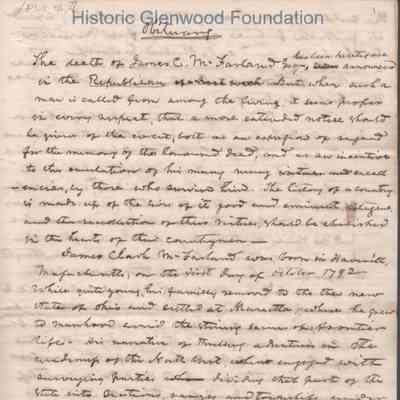 Historic Glenwood Foundation
Obituary
The death of James C. McFarland Esq, has been announced
in the Republican of last week But when such a
man is called from among the living, it seems proper
in every respect, that a more extended notice should
be given of the event, both as an expression of regard
for the memory of the honoured dead, and as an incentive
to the emulation of his many virtues and excell
encies, by those who survive him. The history of a country
is made up of the lives of its good and eminent
and the recollection of their virtues, should be cherished
in the hearts of their countrymen —
James Clark McFarland was born in
Massachusetts, on the first day of October 1792
While quite young, his family removed to the then new
State of Ohio and settled at Marietta, where he grew
to manhood amid the stirring scenes of frontier
life. His narrative of thrilling adventures in the
of the North West when engaged with
surveying parties dividing that part of the
State into Sections, ranges and townships